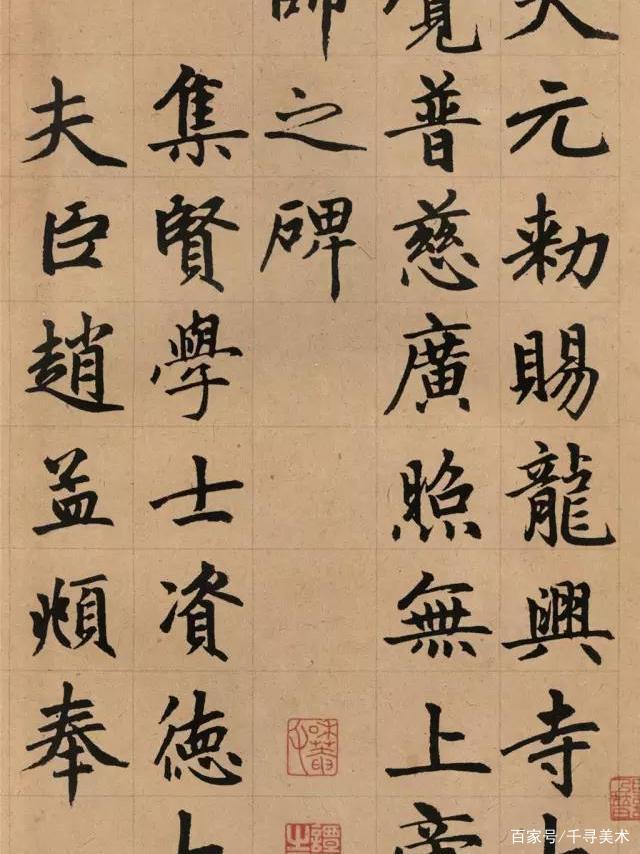 大元勅賜龍興寺大
覺普慈廣照無上帝
師之碑
集賢學士資德大
夫臣趙孟頫奉
百家号/千寻美术